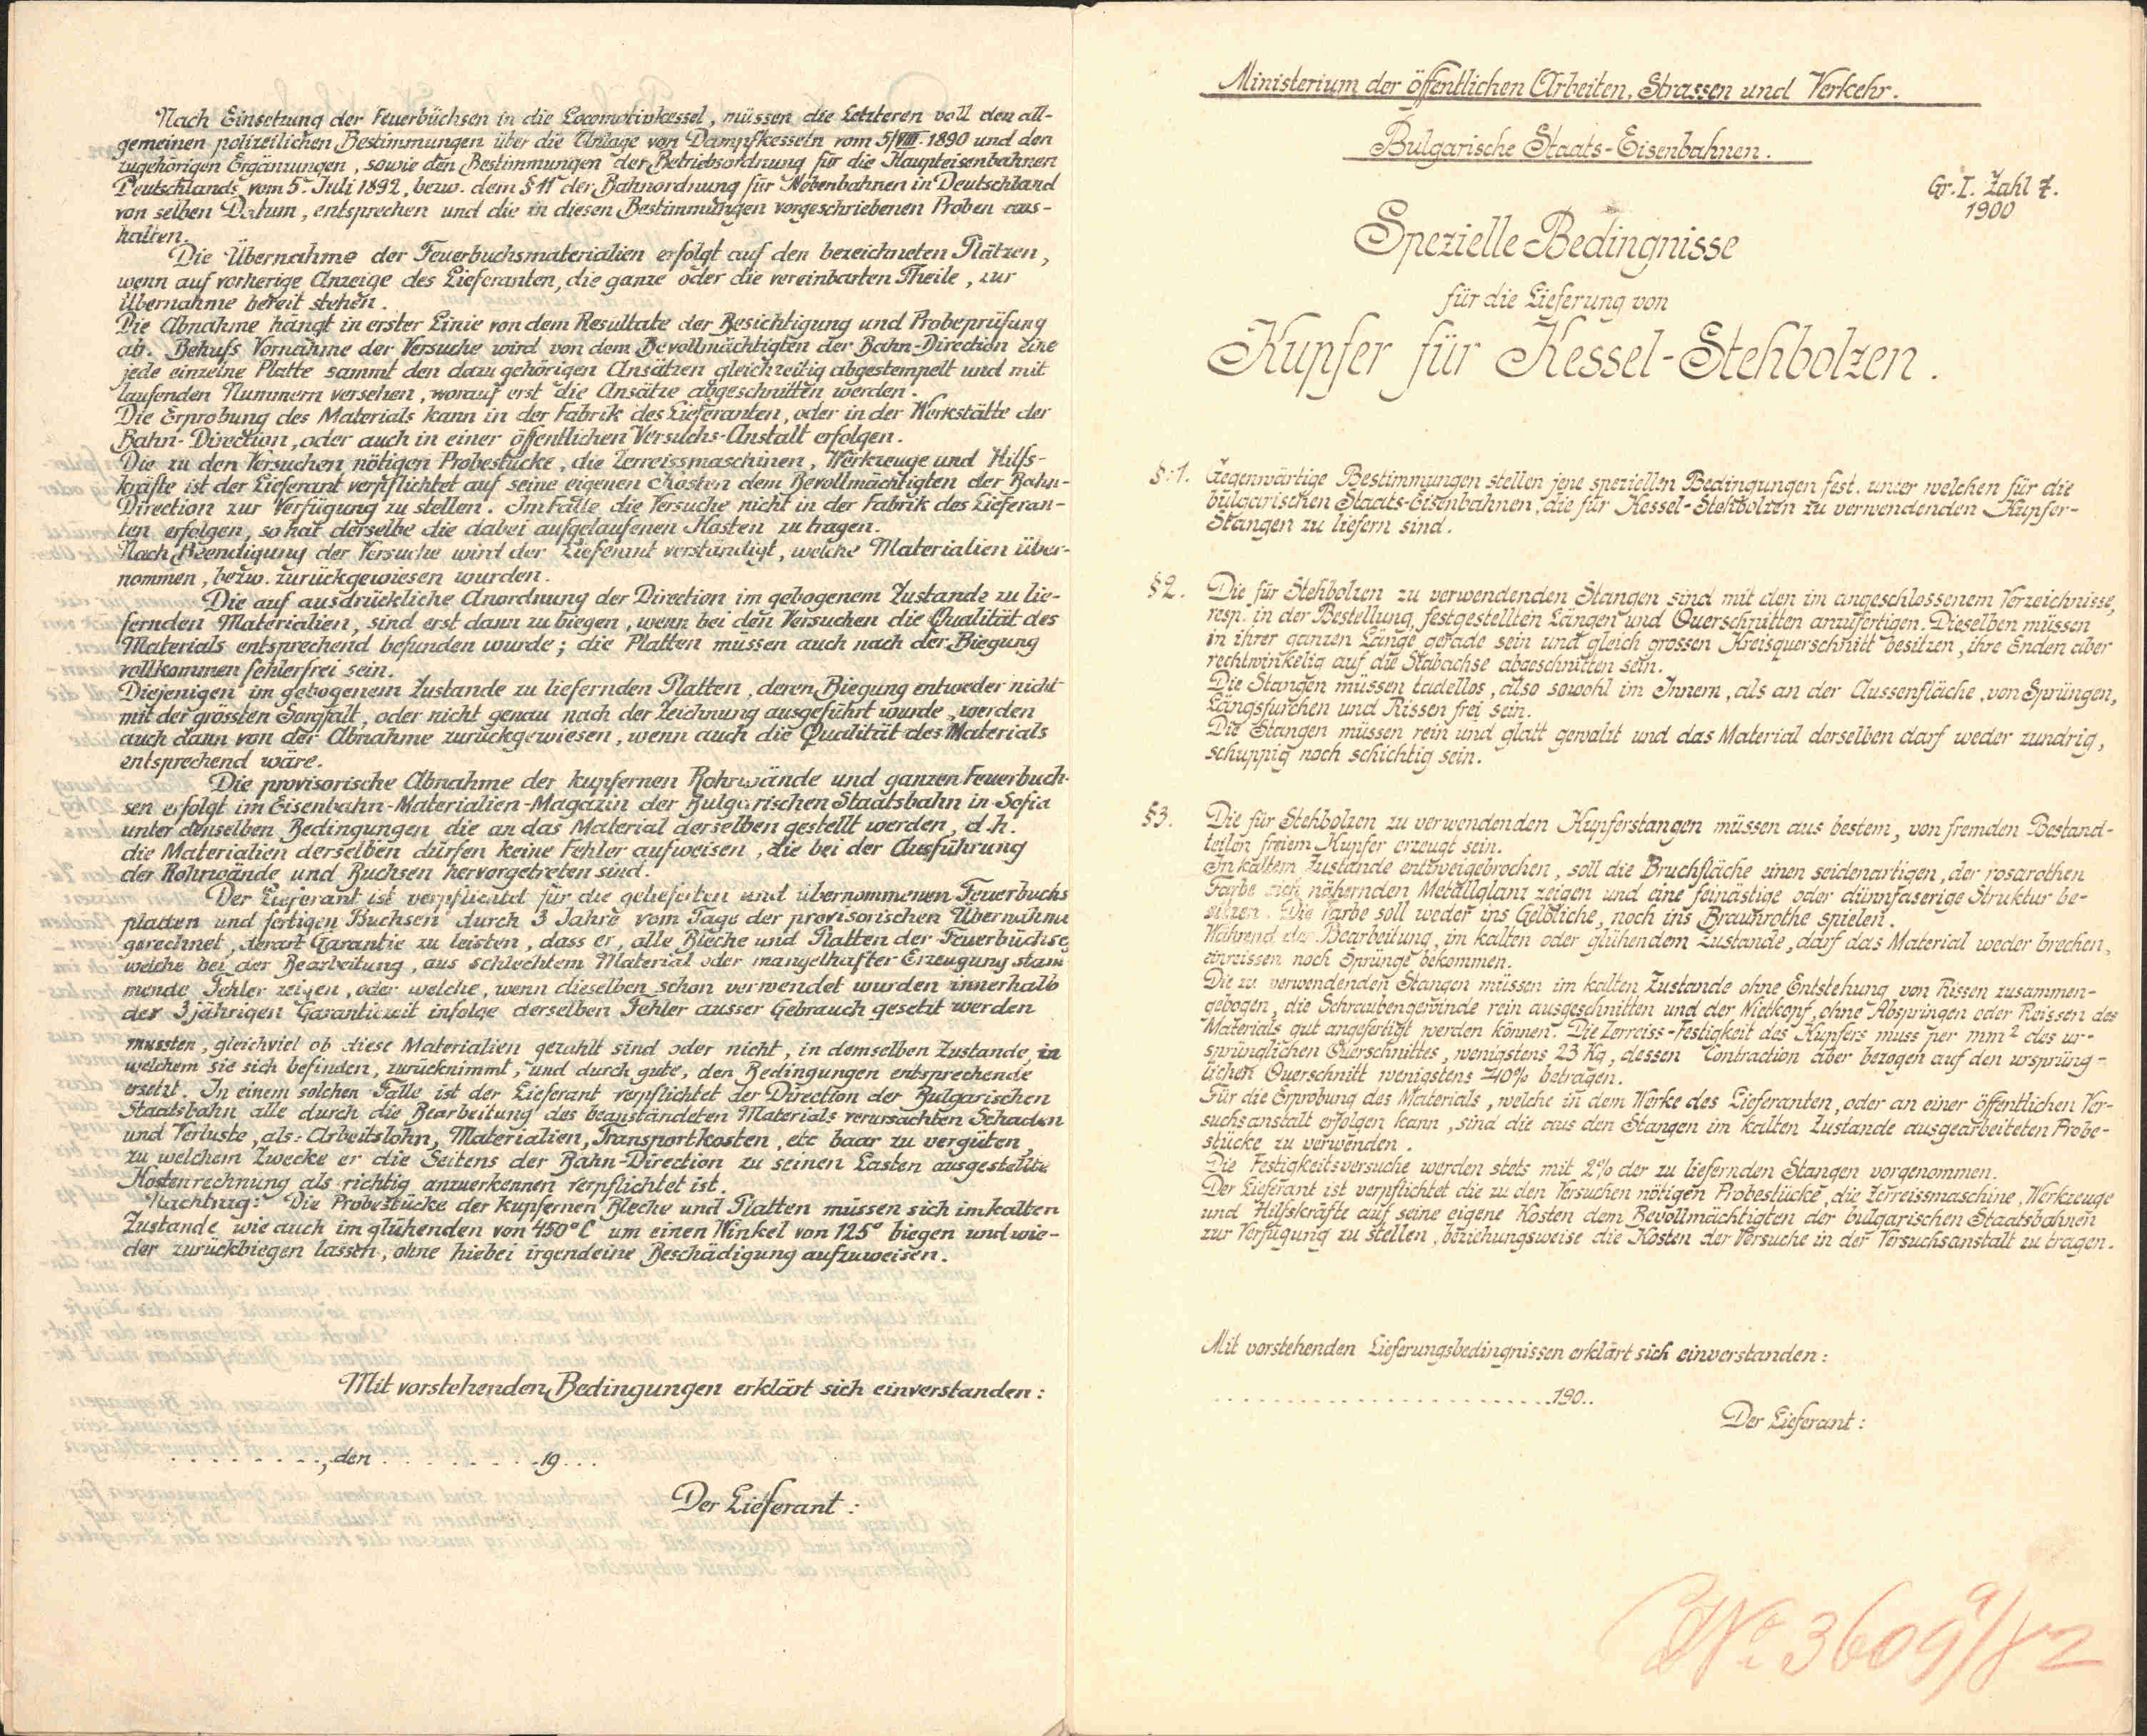 Nach Einsetzung der Feuerbüchsen in die Locomotivkessel, müssen die Letzteren voll den all-
gemeinen polizeilichen Bestimmungen über die Anlage von Dampfkesseln vom 5/VIII. 1890 und den
zugehörigen Ergänzungen, sowie den Bestimmungen der Betriebsordnung für die Haupteisenbahnen
Deutschlands vom 5. Juli 1892, bezw. dem § 11 der Bahnordnung für Nebenbahnen in Deutschland
von selben Datum, entsprechen und die in diesen Bestimmungen vorgeschriebenen Proben aus-
halten.
Die Übernahme der Feuerbuchsmaterialien erfolgt auf den bezeichneten Plätzen,
wenn auf vorherige Anzeige des Lieferanten, die ganze oder die vereinbarten Theile, zur
Übernahme bereit stehen.
Die Abnahme hängt in erster Linie von dem Resultate der Besichtigung und Probeprüfung
ab. Behufs Vornahme der Versuche wird von dem Bevollmächtigten der Bahn-Direction eine
jede einzelne Platte sammt den dazu gehörigen Ansätzen gleichzeitig abgestempelt und mit
laufenden Nummern versehen, worauf erst die Ansätze abgeschnitten werden.
Die Erprobung des Materials kann in der Fabrik des Lieferanten, oder in der Werkstätte der
Bahn-Direction, oder auch in einer öffentlichen Versuchs-Anstalt erfolgen.
Die zu den Versuchen nötigen Probestücke, die Zerreissmaschinen, Werkzeuge und Hilfs-
kräfte ist der Lieferant verpflichtet auf seine eigenen Kosten dem Bevollmächtigten der Bahn-
Direction zur Verfügung zu stellen. Im Falle die Versuche nicht in der Fabrik des Lieferan-
ten erfolgen, so hat derselbe die dabei aufgelaufenen Kosten zu tragen.
Nach Beendigung der Versuche wird der Lieferant verständigt, welche Materialien über-
nommen, bezw. zurückgewiesen wurden.
Die auf ausdrückliche Anordnung der Direction im gebogenem Zustande zu lie-
fernden Materialien, sind erst dann zu biegen, wenn bei den Versuchen die Qualität des
Materials entsprechend befunden wurde; die Platten müssen auch nach der Biegung
vollkommen fehlerfrei sein.
Diejenigen im gebogenem Zustande zu liefernden Platten, deren Biegung entweder nicht
mit der grössten Sorgfalt, oder nicht genau nach der Zeichnung ausgeführt wurde, werden
auch dann von der Abnahme zurückgewiesen, wenn auch die Qualität des Materials
entsprechend wäre.
Die provisorische Abnahme der kupfernen Rohrwände und ganzen Feuerbuch-
sen erfolgt im Eisenbahn-Materialien-Magazin der Bulgarischen Staatsbahn in Sofia
unter denselben Bedingungen die an das Material derselben gestellt werden, d.h.
die Materialien derselben dürfen keine Fehler aufweisen, die bei der Ausführung
der Rohrwände und Buchsen hervorgetreten sind.
Der Lieferant ist verpflichtet für die gelieferten und übernommenen Feuerbuchs
platten und fertigen Buchsen durch 3 Jahre vom Tage der provisorischen Übernahme
gerechnet, derart Garantie zu leisten, dass er, alle Bleche und Platten der Feuerbüchse,
welche bei der Bearbeitung, aus schlechtem Material oder mangelhafter Erzeugung stam
mende Fehler zeigen, oder welche, wenn dieselben schon verwendet wurden innerhalb
der 3 jährigen Garantiezeit infolge derselben Fehler ausser Gebrauch gesetzt werden
mussten, gleichviel ob diese Materialien gezahlt sind oder nicht, in demselben Zustande, in
welchem sie sich befinden, zurücknimmt, und durch gute, den Bedingungen entsprechende
ersetzt. In einem solchen Falle ist der Lieferant verpflichtet der Direction der Bulgarischen
Staatsbahn alle durch die Bearbeitung des beanständeten Materials verursachten Schaden
und Verluste, als: Arbeitslohn, Materialien, Transportkosten, etc baar zu vergüten
zu welchem Zwecke er die Seitens der Bahn-Direction zu seinen Lasten ausgestellte
Kostenrechnung als richtig anzuerkennen verpflichtet ist.
Nachtrag: Die Probestücke der kupfernen Bleche und Platten müssen sich im kalten
Zustande, wie auch im glühenden von 450° C um einen Winkel von 125° biegen und wie-
der zurückbiegen lassen, ohne hiebei irgendeine Beschädigung aufzuweisen.
Mit vorstehenden Bedingungen erklärt sich einverstanden:
........., den .........19...
Der Lieferant:
Ministerium der öffentlichen Arbeiten, Strassen und Verkehr.
Bulgarische Staats-Eisenbahnen.
Gr. I. Zahl 7.
1900
Spezielle Bedingnisse
für die Lieferung von
Kupfer für Kessel-Stehbolzen.
§.1. Gegenwärtige Bestimmungen stellen jene speziellen Bedingungen fest, unter welchen für die
bulgarischen Staats-Eisenbahnen, die für Kessel-Stehbolzen zu verwendenden Kupfer-
Stangen zu liefern sind.
§2. Die für Stehbolzen zu verwendenden Stangen sind mit den im angeschlossenem Verzeichnisse,
resp. in der Bestellung, festgestellten Längen und Querschnitten anzufertigen. Dieselben müssen
in ihrer ganzen Länge gerade sein und gleich grossen Kreisquerschnitt besitzen, ihre Enden aber
rechtwinkelig auf die Stabachse abgeschnitten sein.
Die Stangen müssen tadellos, also sowohl im Innern, als an der Aussenfläche, von Sprüngen,
Längsfurchen und Rissen frei sein.
Die Stangen müssen rein und glatt gewalzt und das Material derselben darf weder zundrig,
schuppig noch schichtig sein.
§3. Die für Stehbolzen zu verwendenden Kupferstangen müssen aus bestem, von fremden Bestand-
teilen freiem Kupfer erzeugt sein.
In kaltem Zustande entzweigebrochen, soll die Bruchfläche einen seidenartigen, der rosarothen
Farbe sich nähernden Metallglanz zeigen und eine feinästige oder dünnfaserige Struktur be-
sitzen. Die Farbe soll weder ins Gelbliche, noch ins Braunrothe spielen.
Während der Bearbeitung, im kalten oder glühendem Zustande, darf das Material weder brechen,
einreissen noch Sprünge bekommen.
Die zu verwendenden Stangen müssen im kalten Zustande ohne Entstehung von Rissen zusammen-
gebogen, die Schraubengewinde rein ausgeschnitten und der Nietkopf, ohne Abspringen oder Reissen des
Materials gut angefertigt werden können. Die Zerreiss-Festigkeit des Kupfers muss per mm² des ur-
sprünglichen Querschnittes, wenigstens 23 Kg, dessen Contraction aber bezogen auf den ursprüng-
lichen Querschnitt wenigstens 40% betragen.
Für die Erprobung des Materials, welche in dem Werke des Lieferanten, oder an einer öffentlichen Ver-
suchsanstalt erfolgen kann, sind die aus den Stangen im kalten Zustande ausgearbeiteten Probe-
stücke zu verwenden.
Die Festigkeitsversuche werden stets mit 2% der zu liefernden Stangen vorgenommen.
Der Lieferant ist verpflichtet die zu den Versuchen nötigen Probestücke, die Zerreissmaschine, Werkzeuge
und Hilfskräfte auf seine eigene Kosten dem Bevollmächtigten der bulgarischen Staatsbahnen
zur Verfügung zu stellen, beziehungsweise die Kosten der Versuche in der Versuchsanstalt zu tragen.
Mit vorstehenden Lieferungsbedingnissen erklärt sich einverstanden:
........................190..
Der Lieferant:
No 3609 a/82